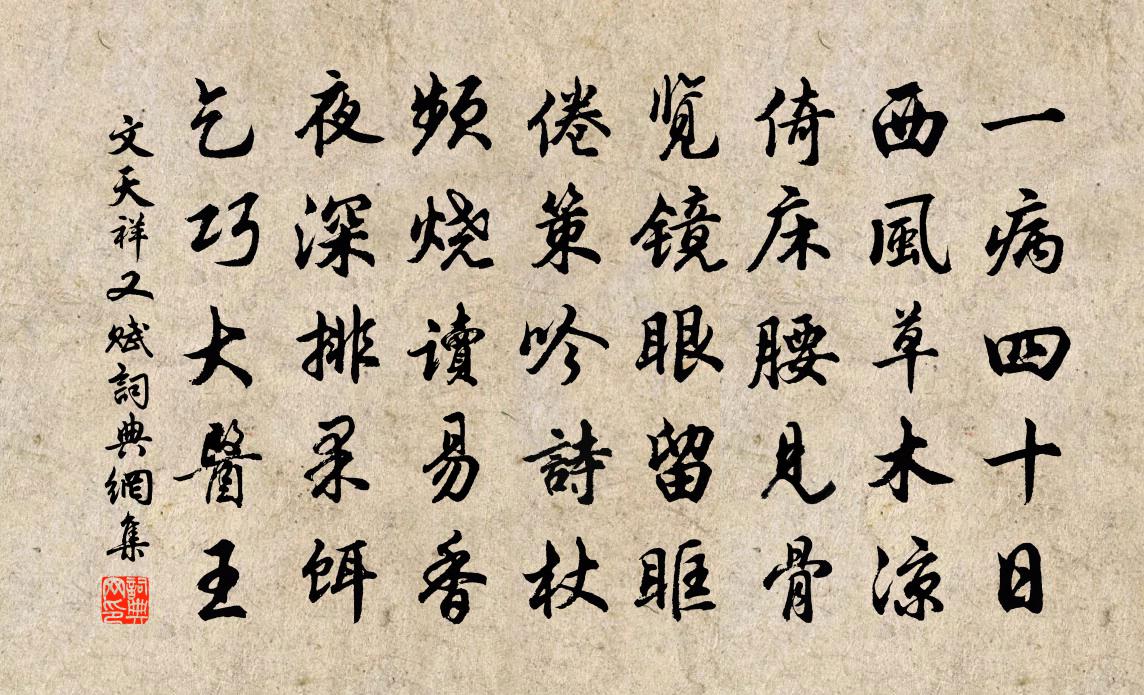 一病四十日
西風草木涼
倚床腰見骨
覽鏡眼留眶
倦策吟詩杖
頻燒讀易香
夜深排果餌
乞巧大醫王
文天祥又賦詞典網集
詞典网印